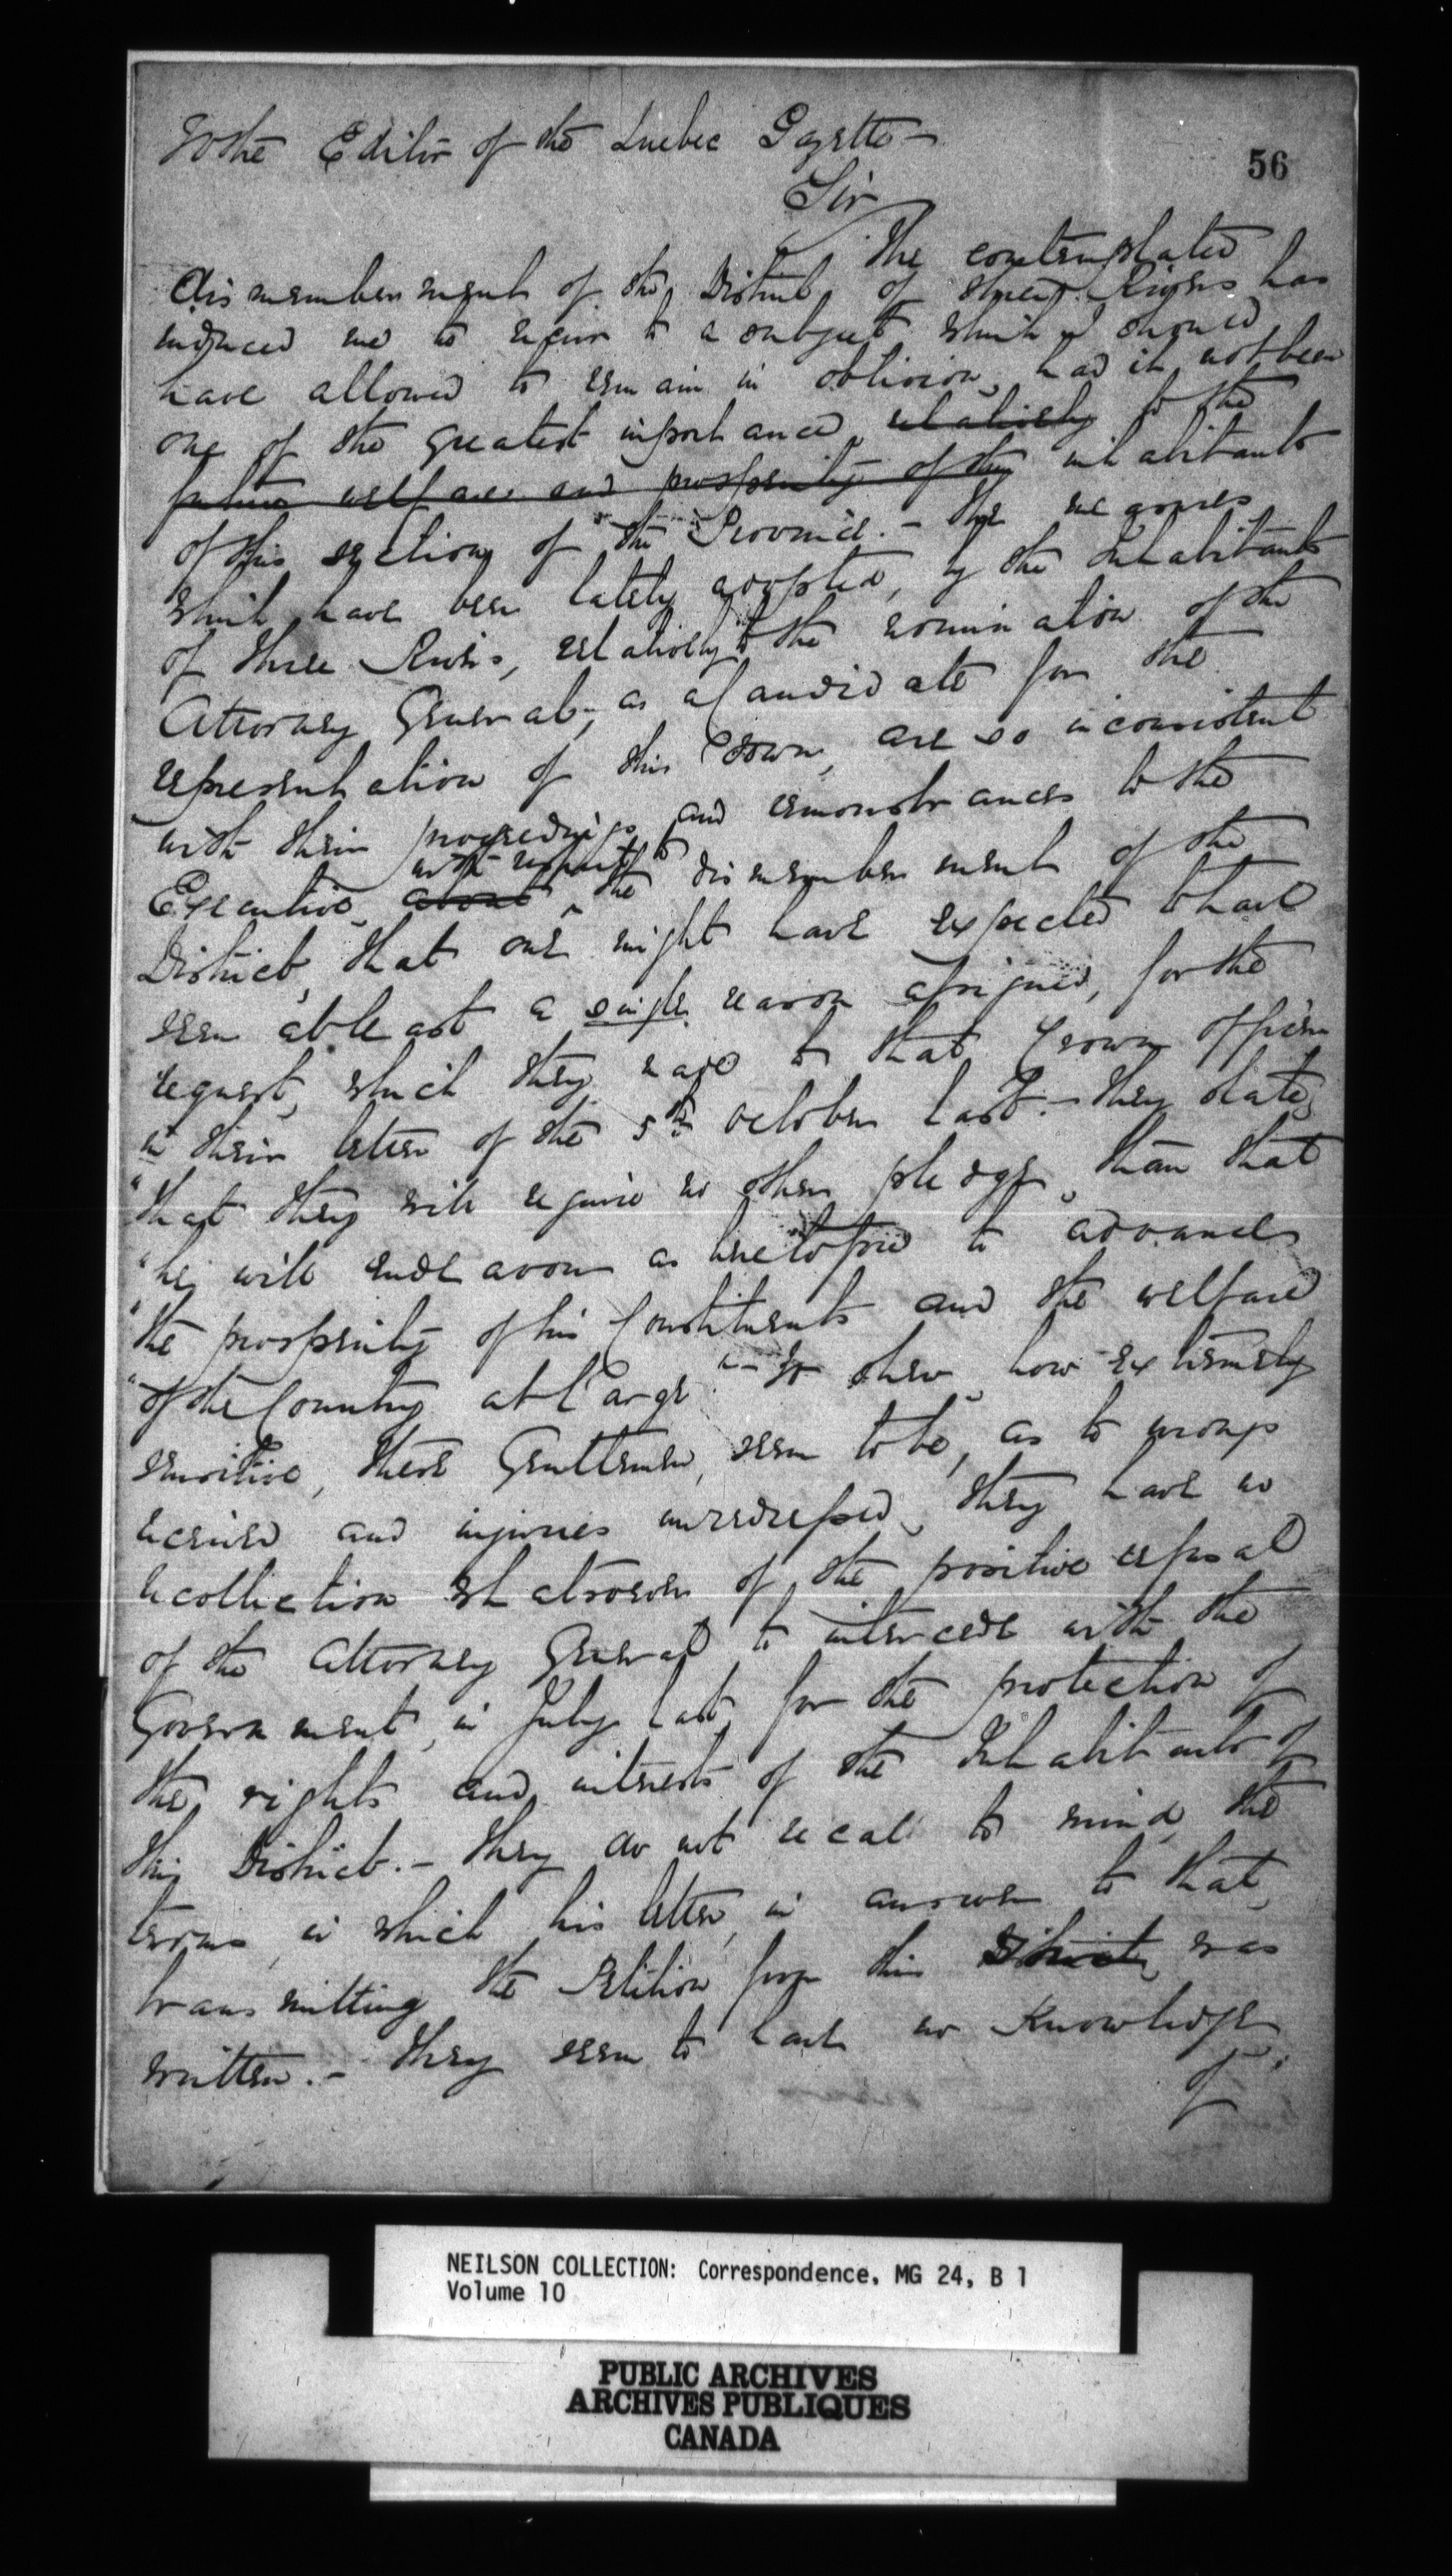 To the Editor of the Quebec Gazette —
56
Sir
The contemplated
dismemberment of the District of Three Rivers has
induced me to recur to a subject which I should
have allowed to remain in oblivion, had it not been
one of the greatest importance, relatively to the
future welfare and prosperity of the inhabitants
of this section of the Province. — The measures
which have been lately adopted, by the Inhabitants
of Three Rivers, relatively to the nomination of the
Attorney General, as a Candidate for the
representation of this Town, are so inconsistent
with their proceedings and remonstrances to the
with respect to
Executive, about the dismemberment of the
District, that one might have expected to have
seen at least a single reason assigned, for the
request, which they made to that Crown Officer
in their letter of the 5th October last. — They state,
"that they will require no other pledge, than that
"he will endeavour as heretofore to advance
"the prosperity of his Constituents and the welfare
"of the Country at large." — To shew how extremely
sensitive, these Gentlemen, seem to be, as to wrongs
received and injuries unredressed, they have no
recollection whatsoever of the positive refusal
of the Attorney General to intercede with the
Government, in July last, for the protection of
the rights and interests of the Inhabitants of
this District. — They do not recall to mind, the
terms in which his letter, in answer to that,
transmitting the Petition from this District, was
written. — They seem to have no knowledge
of
NEILSON COLLECTION: Correspondence, MG 24, B 1
Volume 10
PUBLIC ARCHIVES
ARCHIVES PUBLIQUES
CANADA